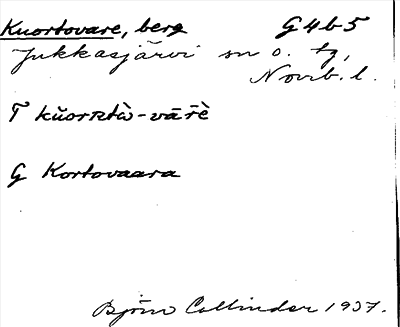 Kuortovare, berg G4b5
Jukkasjärvi sn o. tg,
Norrb. l.
T kŭorʀtὼ-vār̄ὲ
G Kortovaara
Björn Collinder 1937.